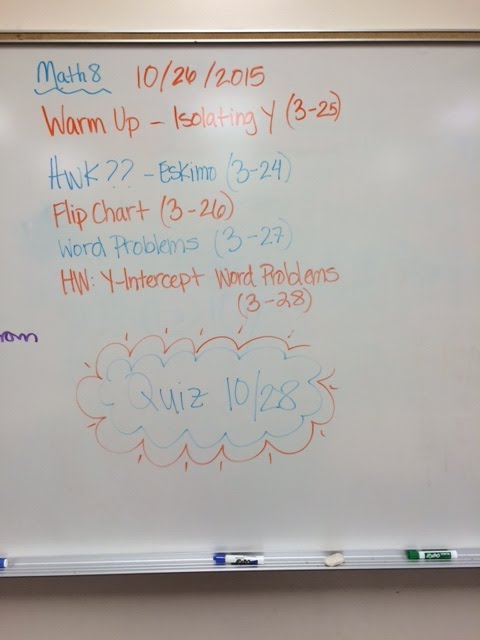 Math 8 10/26/2015
Warm Up - Isolating Y (3-25)
HWK?? - Eskimo (3-24)
Flip Chart (3-26)
Word Problems (3-27)
HW: Y-Intercept Word Problems
(3-28)
Quiz 10/28